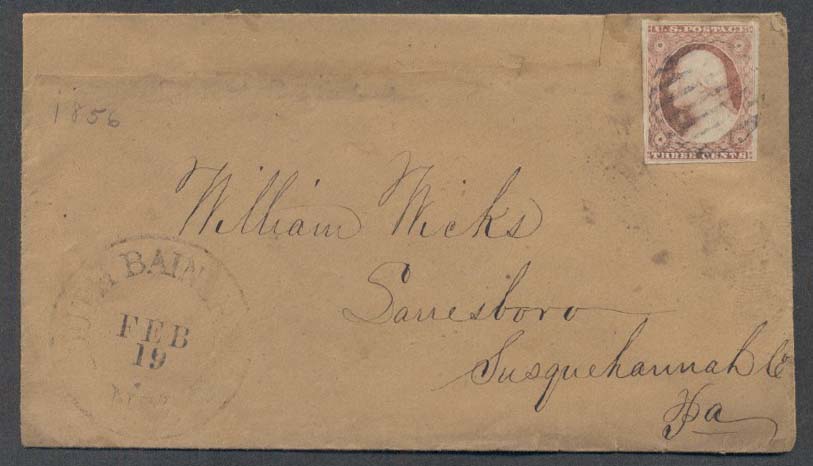 U.S. POSTAGE
THREE CENTS
1856
William Wicks
Lanesboro
Susquehannah Co
Pa
SOUTH BAIN
FEB
19